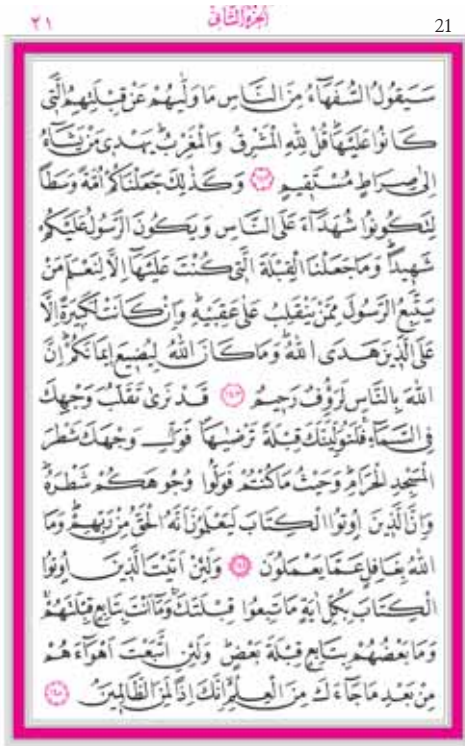 ٢١ الجزء الثاني 21
سَيَقُولُ السُّفَهَاءُ مِنَ النَّاسِ مَا وَلّٰيهُمْ عَنْ قِبْلَتِهِمُ الَّتٖى
كَانُوا عَلَيْهَا قُلْ لِلّٰهِ الْمَشْرِقُ وَالْمَغْرِبُ يَهْدٖى مَنْ يَشَاءُ
اِلٰى صِرَاطٍ مُسْتَقٖيمٍ ﴿١٤٢﴾ وَكَذٰلِكَ جَعَلْنَاكُمْ اُمَّةً وَسَطًا
لِتَكُونُوا شُهَدَاءَ عَلَى النَّاسِ وَيَكُونَ الرَّسُولُ عَلَيْكُمْ
شَهٖيدًا وَمَا جَعَلْنَا الْقِبْلَةَ الَّتٖى كُنْتَ عَلَيْهَا اِلَّا لِنَعْلَمَ مَنْ
يَتَّبِعُ الرَّسُولَ مِمَّنْ يَنْقَلِبُ عَلٰى عَقِبَيْهِ وَاِنْ كَانَتْ لَكَبٖيرَةً اِلَّا
عَلَى الَّذٖينَ هَدَى اللّٰهُ وَمَا كَانَ اللّٰهُ لِيُضٖيعَ اٖيمَانَكُمْ اِنَّ
اللّٰهَ بِالنَّاسِ لَرَؤُفٌ رَحٖيمٌ ﴿١٤٣﴾ قَدْ نَرٰى تَقَلُّبَ وَجْهِكَ
فِى السَّمَاءِ فَلَنُوَلِّيَنَّكَ قِبْلَةً تَرْضٰيهَا فَوَلِّ وَجْهَكَ شَطْرَ
الْمَسْجِدِ الْحَرَامِ وَحَيْثُ مَا كُنْتُمْ فَوَلُّوا وُجُوهَكُمْ شَطْرَهُ
وَاِنَّ الَّذٖينَ اُوتُوا الْكِتَابَ لَيَعْلَمُونَ اَنَّهُ الْحَقُّ مِنْ رَبِّهِمْ وَمَا
اللّٰهُ بِغَافِلٍ عَمَّا يَعْمَلُونَ ﴿١٤٤﴾ وَلَئِنْ اَتَيْتَ الَّذٖينَ اُوتُوا
الْكِتَابَ بِكُلِّ اٰيَةٍ مَا تَبِعُوا قِبْلَتَكَ وَمَا اَنْتَ بِتَابِعٍ قِبْلَتَهُمْ
وَمَا بَعْضُهُمْ بِتَابِعٍ قِبْلَةَ بَعْضٍ وَلَئِنِ اتَّبَعْتَ اَهْوَاءَهُمْ
مِنْ بَعْدِ مَا جَاءَكَ مِنَ الْعِلْمِ اِنَّكَ اِذًا لَمِنَ الظَّالِمٖينَ ﴿١٤٥﴾